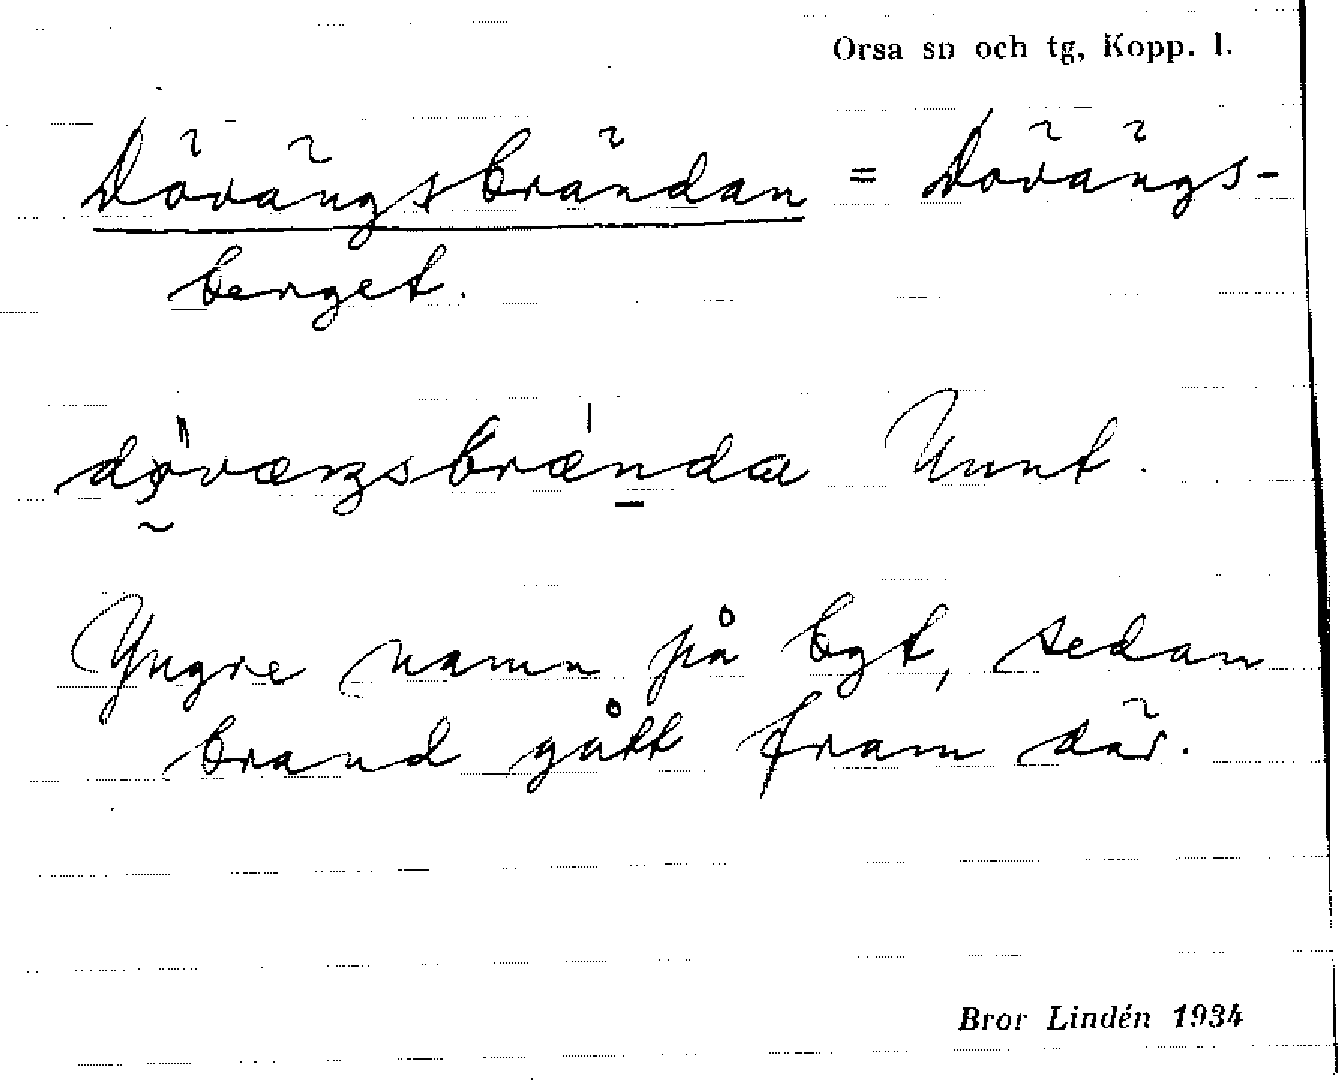 Orsa sn och tg, Kopp. l.
Dövängsbrändan = Dövängs-
berget.
Unnt.
Yngre namn på bgt, sedan
brand gått fram där.
Bror Lindén 1934